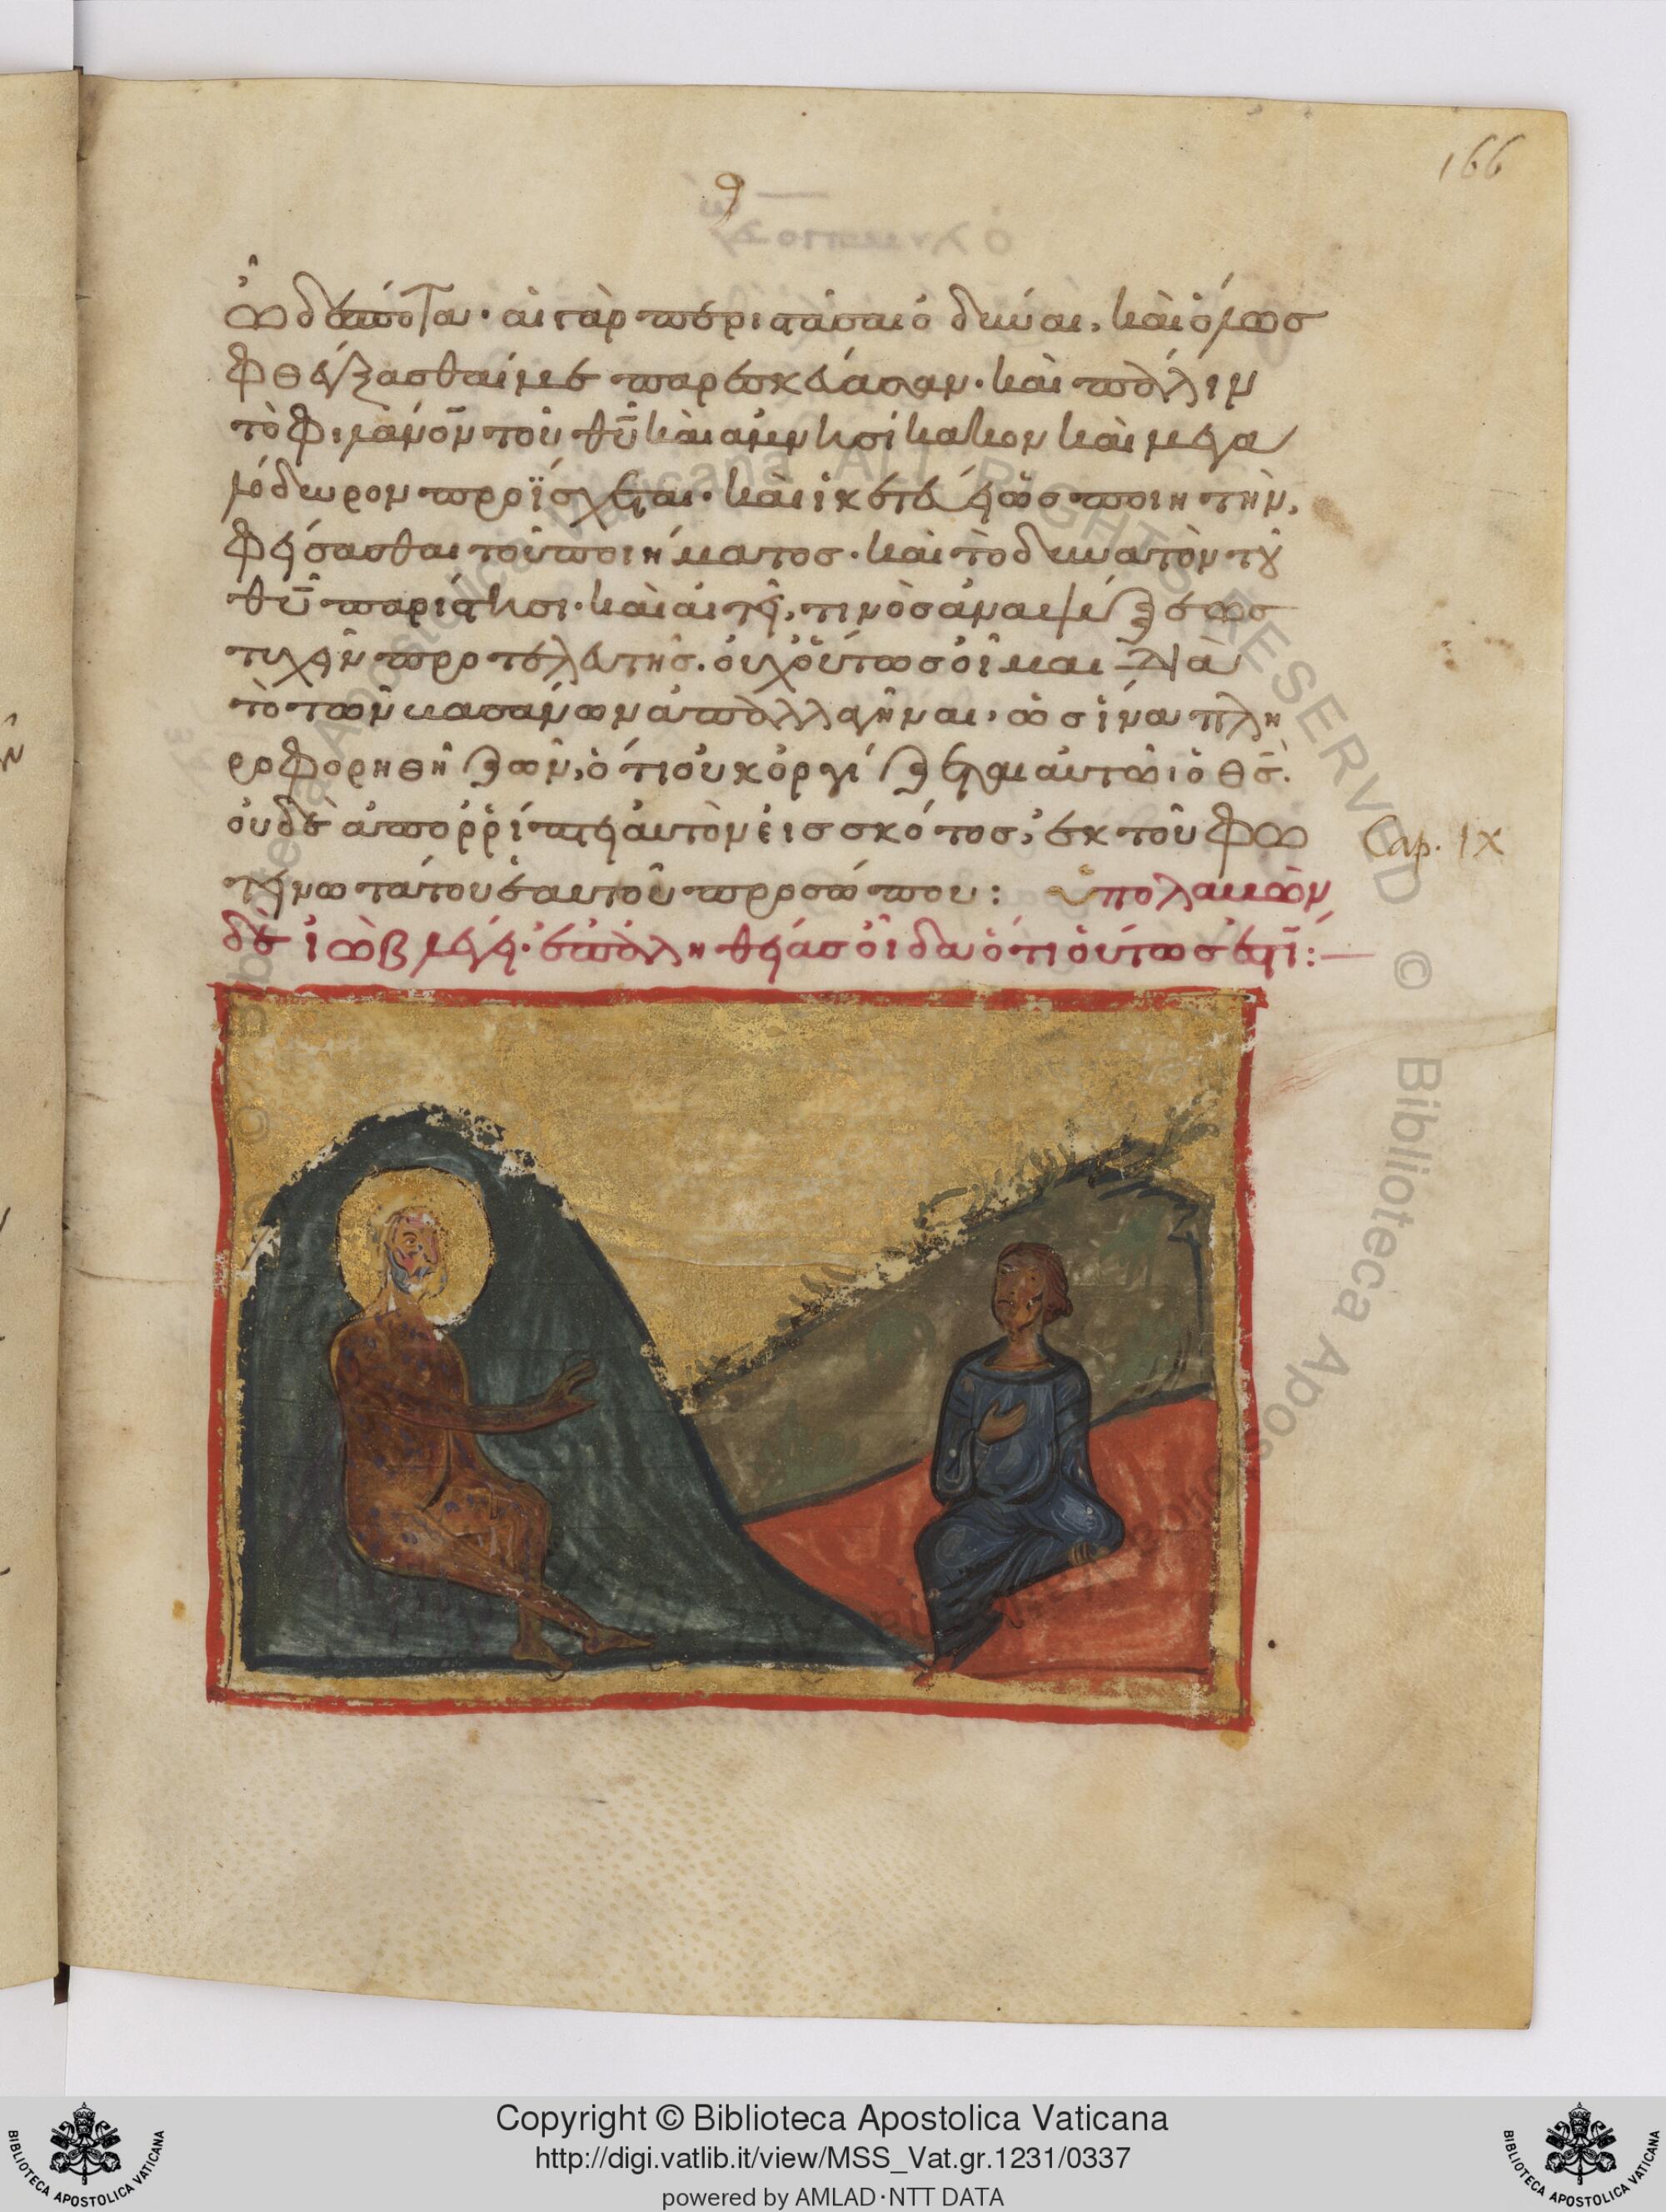 166
ὦ δέσποτα· αἱ γὰρ περιστάσαι ὀδύναι, καὶ ὅμως
φθέγξασθαί με παρεσκεύασαν· καὶ πάλιν
τὸ φιλάνον τοῦ θυ καὶ ἀμνησίκακον καὶ μεγα
λόδωρον προΐσχεται· καὶ ἱκετεύει ὡς ποιητὴν,
φείσασθαι τοῦ ποιήματος· καὶ τὸ δυνατὸν τοῦ
θυ παρίστησι· καὶ αἰτεῖ, τινὸς ἀναψύξεως
τυχεῖν πρὸ τελευτῆς. οὐχ οὕτως οἶμαι διὰ
τὸ τῶν βασάνων ἀπαλλαγῆναι, ὡς ἵνα πλη
ροφορηθῇ ζῶν, ὅτι οὐκ ὀργίζεται αὐτῶι ὁ θς.
οὐδὲ ἀπορρίπτει αὐτὸν εἰς σκότος, ἐκ τοῦ φω
τεινωτάτου ἑαυτοῦ προσώπου: ὑπολαβὼν
δὲ ἰὼβ λέγει· ἐπ ἀληθείας οἶδα ὅτι οὕτως ἐστί:
Cap. IX
Copyright © Biblioteca Apostolica Vaticana
http://digi.vatlib.it/view/MSS_Vat.gr.1231/0337
powered by AMLAD·NTT DATA
BIBLIOTECA APOSTOLICA VATICANA
BIBLIOTECA APOSTOLICA VATICANA